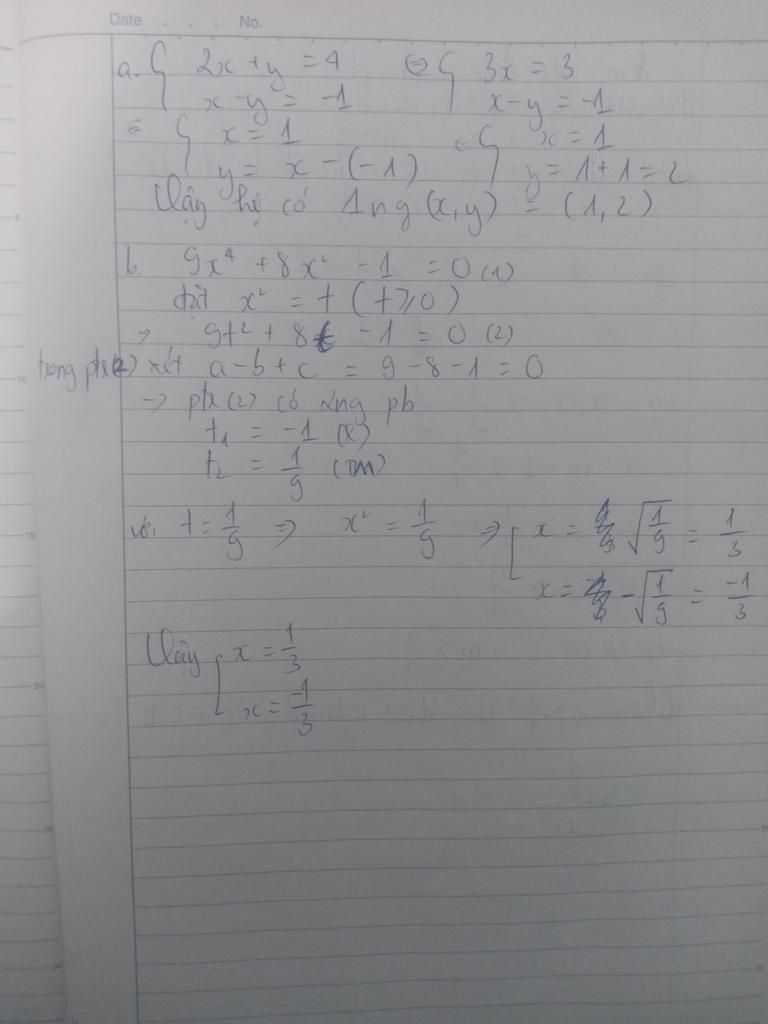 Date . . . No.
a. { 2x + y = 4 ⇔ { 3x = 3
x - y = -1 x - y = -1
{ x = 1 { x = 1
y = x - (-1) y = 1 + 1 = 2
Vậy hệ có 1 ng (x, y) = (1, 2)
b. 9x⁴ + 8x² - 1 = 0 (1)
đặt x² = t (t ⩾ 0)
⇒ 9t² + 8t - 1 = 0 (2)
trong ptr(2) xét a - b + c = 9 - 8 - 1 = 0
→ ptr (2) có 2 ng pb
t₁ = -1 (L)
t₂ = 1/9 (TM)
với t = 1/9 ⇒ x² = 1/9 ⇒ [ x = √(1/9) = 1/3
x = -√(1/9) = -1/3
Vậy [ x = 1/3
x = -1/3
5
10
15
20
25